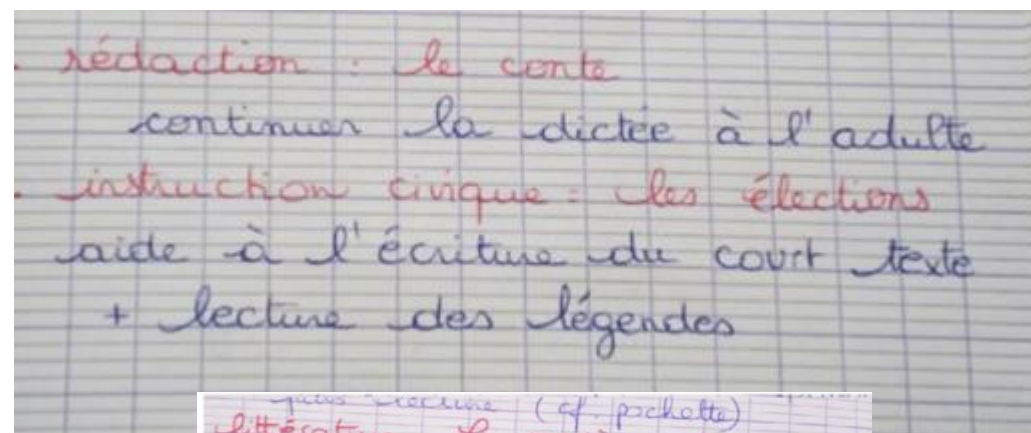 . rédaction : le conte
continuer la dictée à l'adulte
. instruction civique : les élections
aide à l'écriture du court texte
+ lecture des légendes
lecture (cf. pochette)